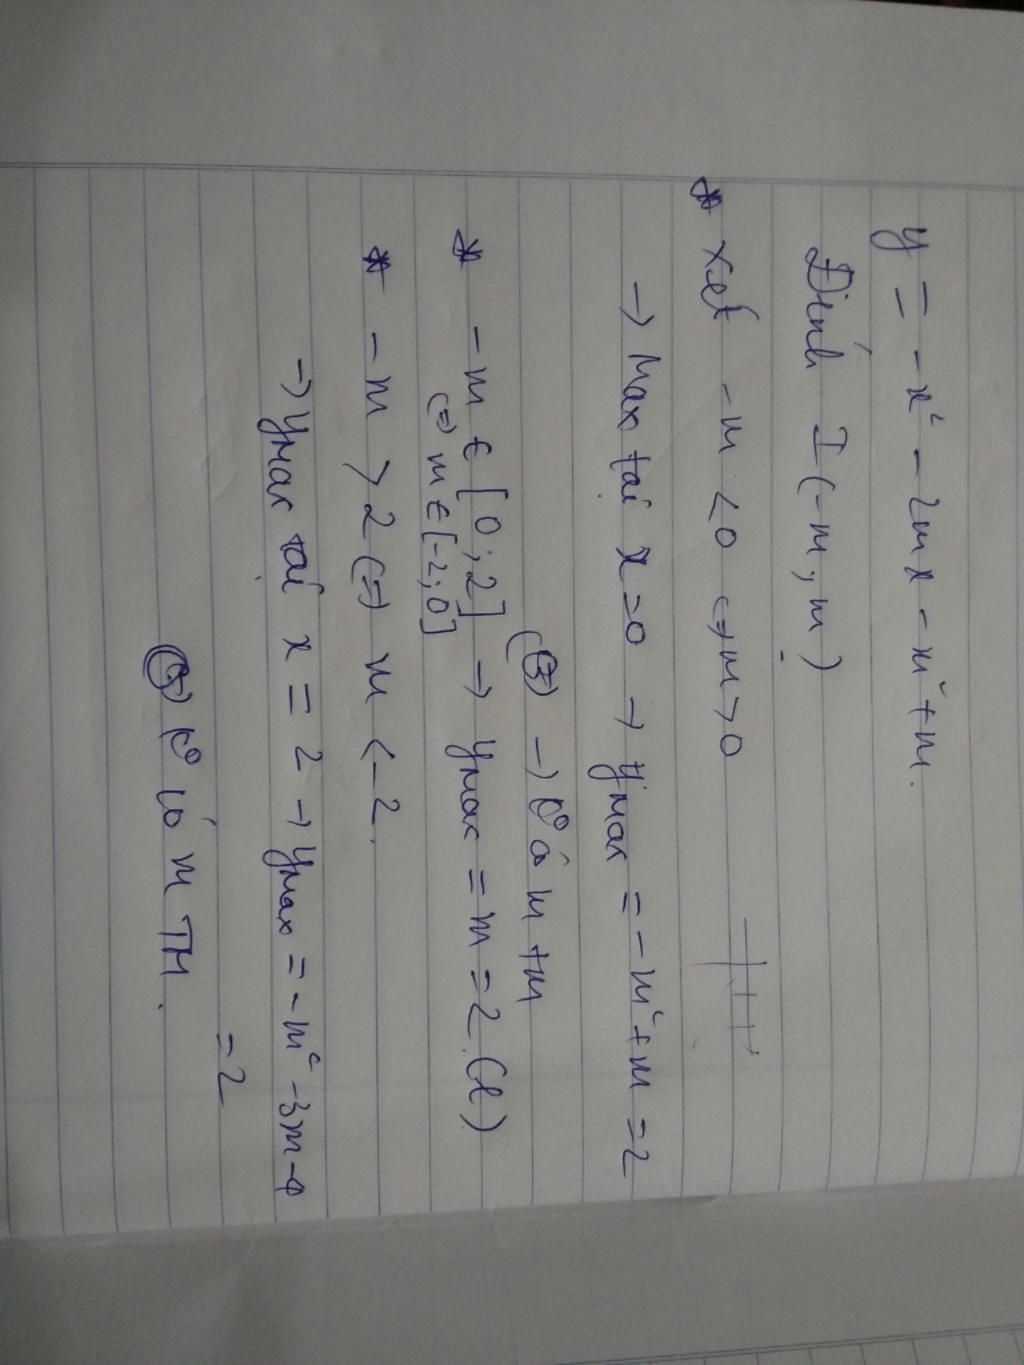 y = -x² - 2mx - m² + m.
Đỉnh I(-m; m)
* Xét -m < 0 <=> m > 0
→ Max tại x = 0 → ymax = -m² + m = 2
→ m
* -m ∈ [0; 2] → ymax = m = 2 (l)
<=> m ∈ [-2; 0]
* -m > 2 <=> m < -2.
→ ymax tại x = 2 → ymax = -m² - 3m - 4
= 2
có m TM.